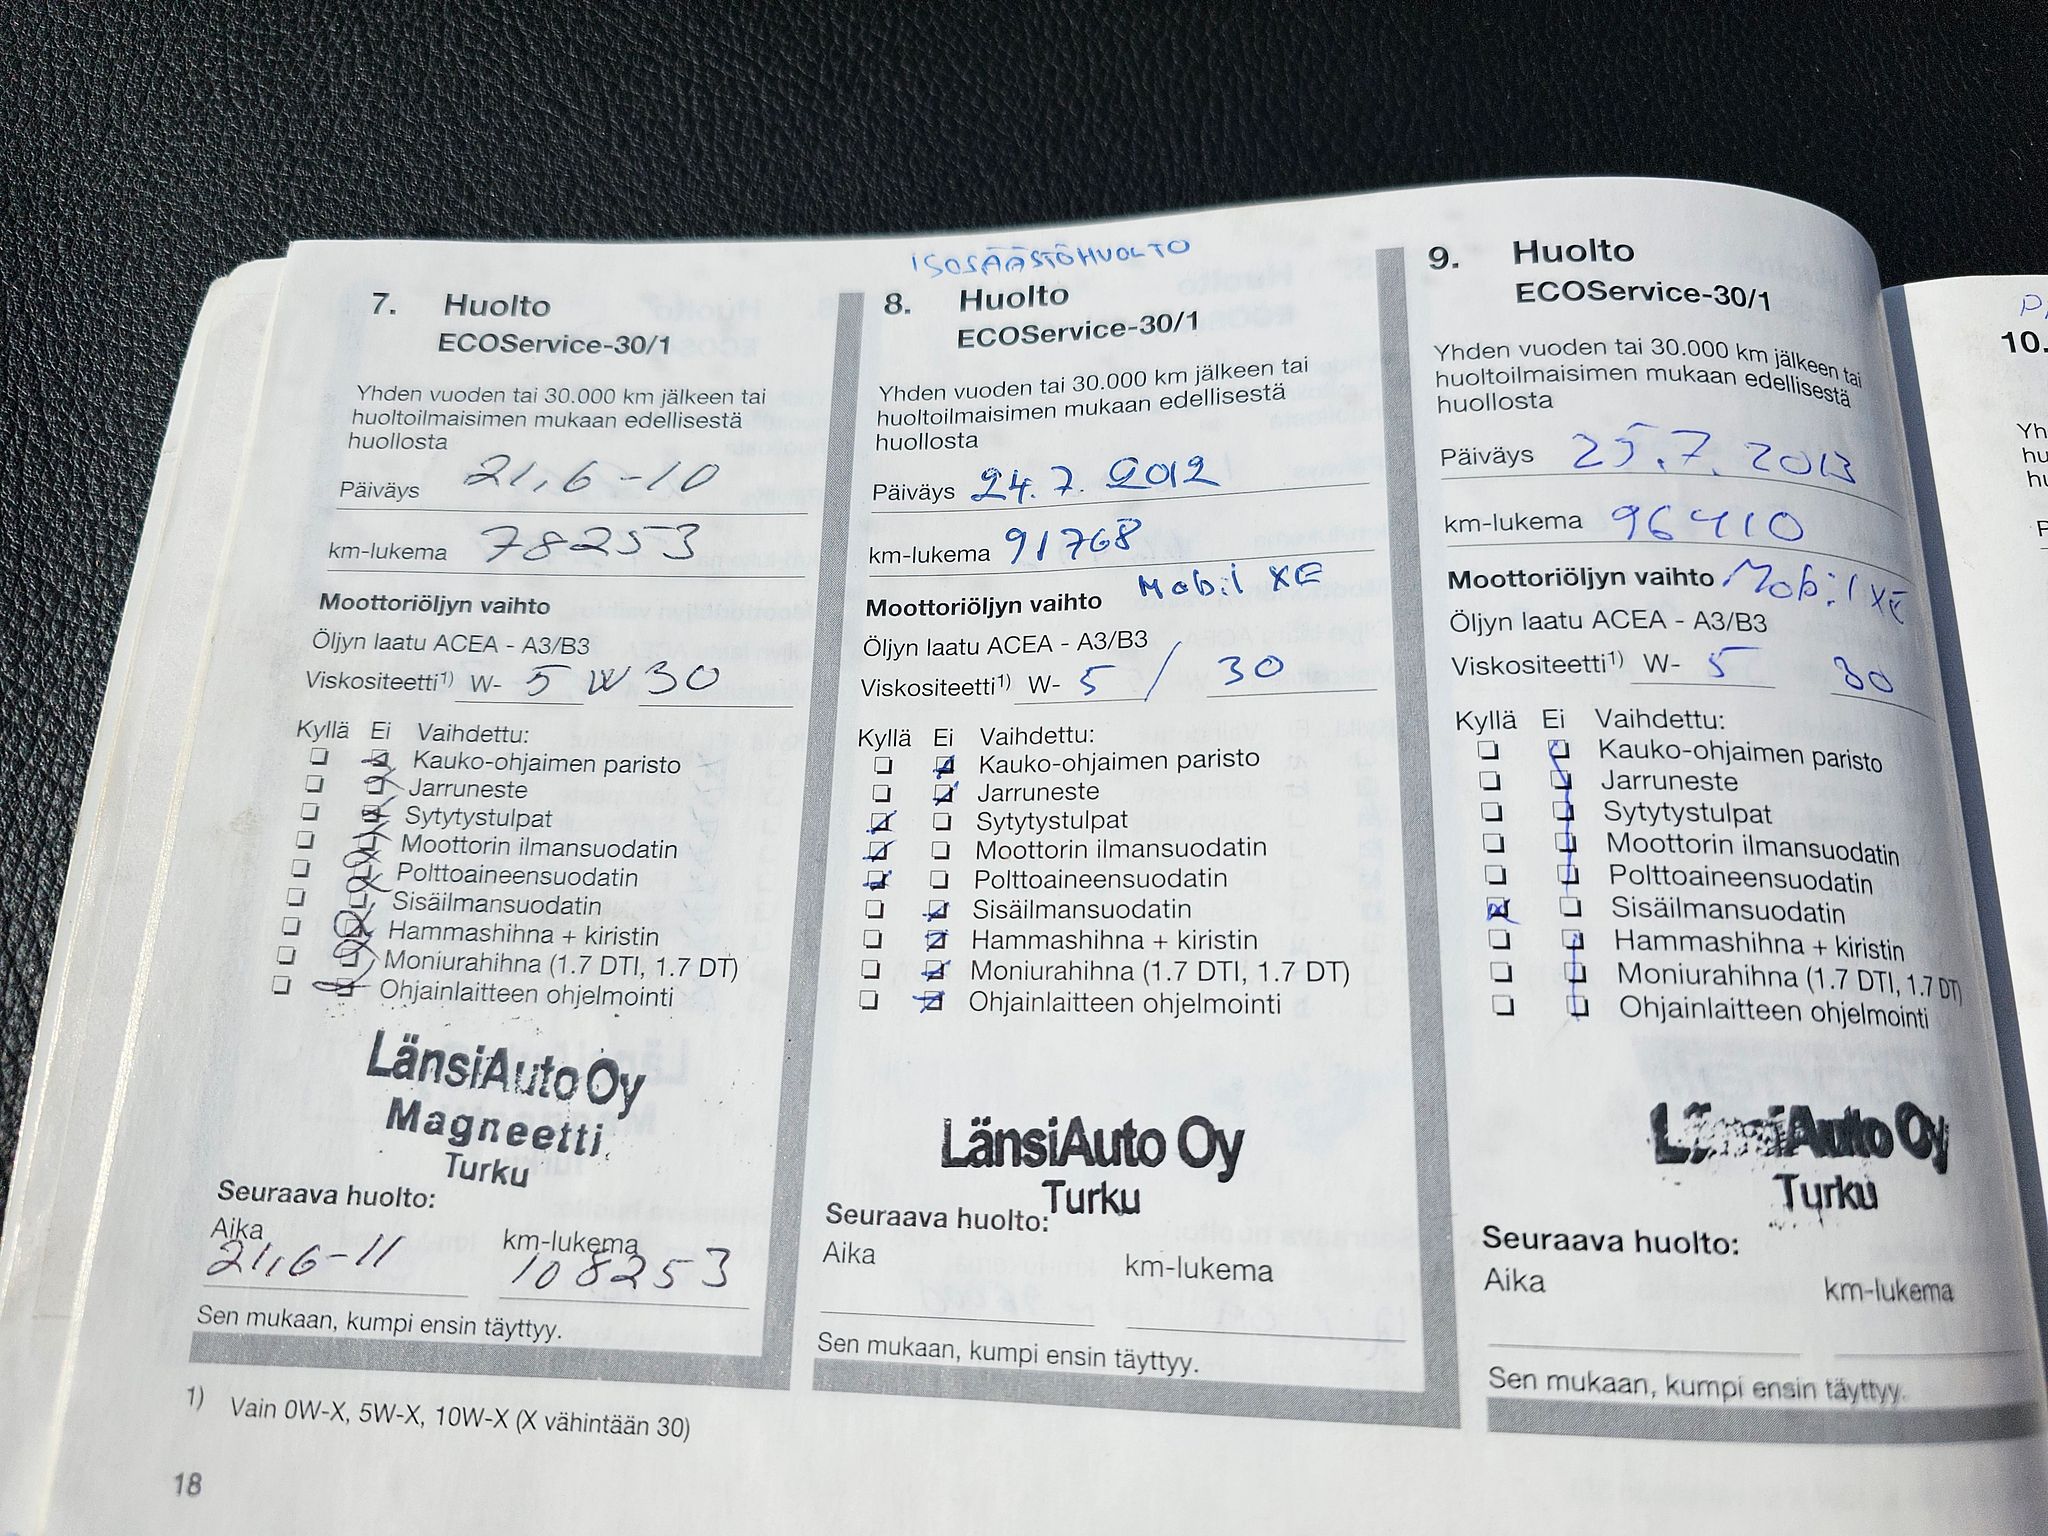 7. Huolto
ECOService-30/1
Yhden vuoden tai 30.000 km jälkeen tai
huoltoilmaisimen mukaan edellisestä
huollosta
Päiväys 21,6-10
km-lukema 78253
Moottoriöljyn vaihto
Öljyn laatu ACEA - A3/B3
Viskositeetti1) W- 5 W 30
Kyllä Ei Vaihdettu:
Kauko-ohjaimen paristo
Jarruneste
Sytytystulpat
Moottorin ilmansuodatin
Polttoaineensuodatin
Sisäilmansuodatin
Hammashihna + kiristin
Moniurahihna (1.7 DTI, 1.7 DT)
Ohjainlaitteen ohjelmointi
LänsiAuto Oy
Magneetti
Turku
Seuraava huolto:
Aika km-lukema
21,6-11 108253
Sen mukaan, kumpi ensin täyttyy.
1) Vain 0W-X, 5W-X, 10W-X (X vähintään 30)
18
ISOSÄÄSTÖHUOLTO
8. Huolto
ECOService-30/1
Yhden vuoden tai 30.000 km jälkeen tai
huoltoilmaisimen mukaan edellisestä
huollosta
Päiväys 24.7.2012
km-lukema 91768
Mobil XE
Moottoriöljyn vaihto
Öljyn laatu ACEA - A3/B3
Viskositeetti1) W- 5 / 30
Kyllä Ei Vaihdettu:
Kauko-ohjaimen paristo
Jarruneste
Sytytystulpat
Moottorin ilmansuodatin
Polttoaineensuodatin
Sisäilmansuodatin
Hammashihna + kiristin
Moniurahihna (1.7 DTI, 1.7 DT)
Ohjainlaitteen ohjelmointi
LänsiAuto Oy
Turku
Seuraava huolto:
Aika km-lukema
Sen mukaan, kumpi ensin täyttyy.
9. Huolto
ECOService-30/1
Yhden vuoden tai 30.000 km jälkeen tai
huoltoilmaisimen mukaan edellisestä
huollosta
Päiväys 25.7.2013
km-lukema 96410
Moottoriöljyn vaihto Mobil XE
Öljyn laatu ACEA - A3/B3
Viskositeetti1) W- 5 30
Kyllä Ei Vaihdettu:
Kauko-ohjaimen paristo
Jarruneste
Sytytystulpat
Moottorin ilmansuodatin
Polttoaineensuodatin
Sisäilmansuodatin
Hammashihna + kiristin
Moniurahihna (1.7 DTI, 1.7 DT)
Ohjainlaitteen ohjelmointi
LänsiAuto Oy
Turku
Seuraava huolto:
Aika km-lukema
Sen mukaan, kumpi ensin täyttyy.
10.